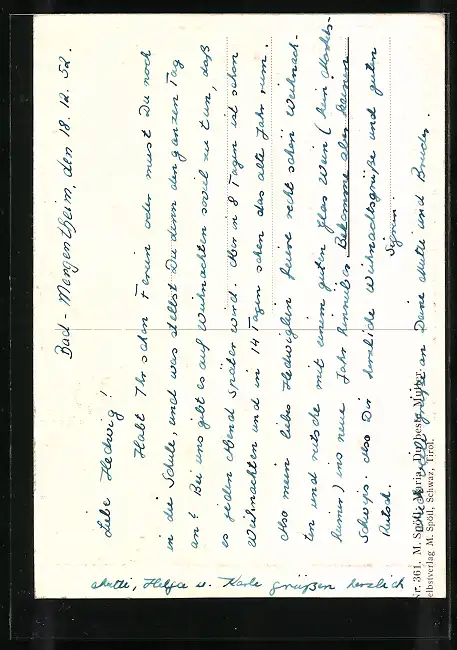 Bad-Mergentheim, den 18.12.52.
Liebe Hedwig!
Habt Ihr schon Ferien oder musst Du noch
in die Schule, und was stellst Du denn den ganzen Tag
an? Bei uns gibt es auf Weihnachten soviel zu tun, daß
es jeden Abend später wird. Aber in 8 Tagen ist schon
Weihnachten und in 14 Tagen schon das alte Jahr rum.
Also mein liebes Hedwiglein feiere recht schön Weihnach-
ten und rutsche mit einem guten Glas Wein (kein
) ins neue Jahr hinüber. Bekomme aber keinen
Schwips. Also Dir herzliche Weihnachtsgrüße und guten
Rutsch.
Sigrun
viele Grüße an Deine Mutti und Bruder.
Mutti, Helga u. Karle grüßen herzlich
Nr. 361, M. Spöll, Maria, Du beste Mutter
Selbstverlag M. Spöll, Schwaz, Tirol.